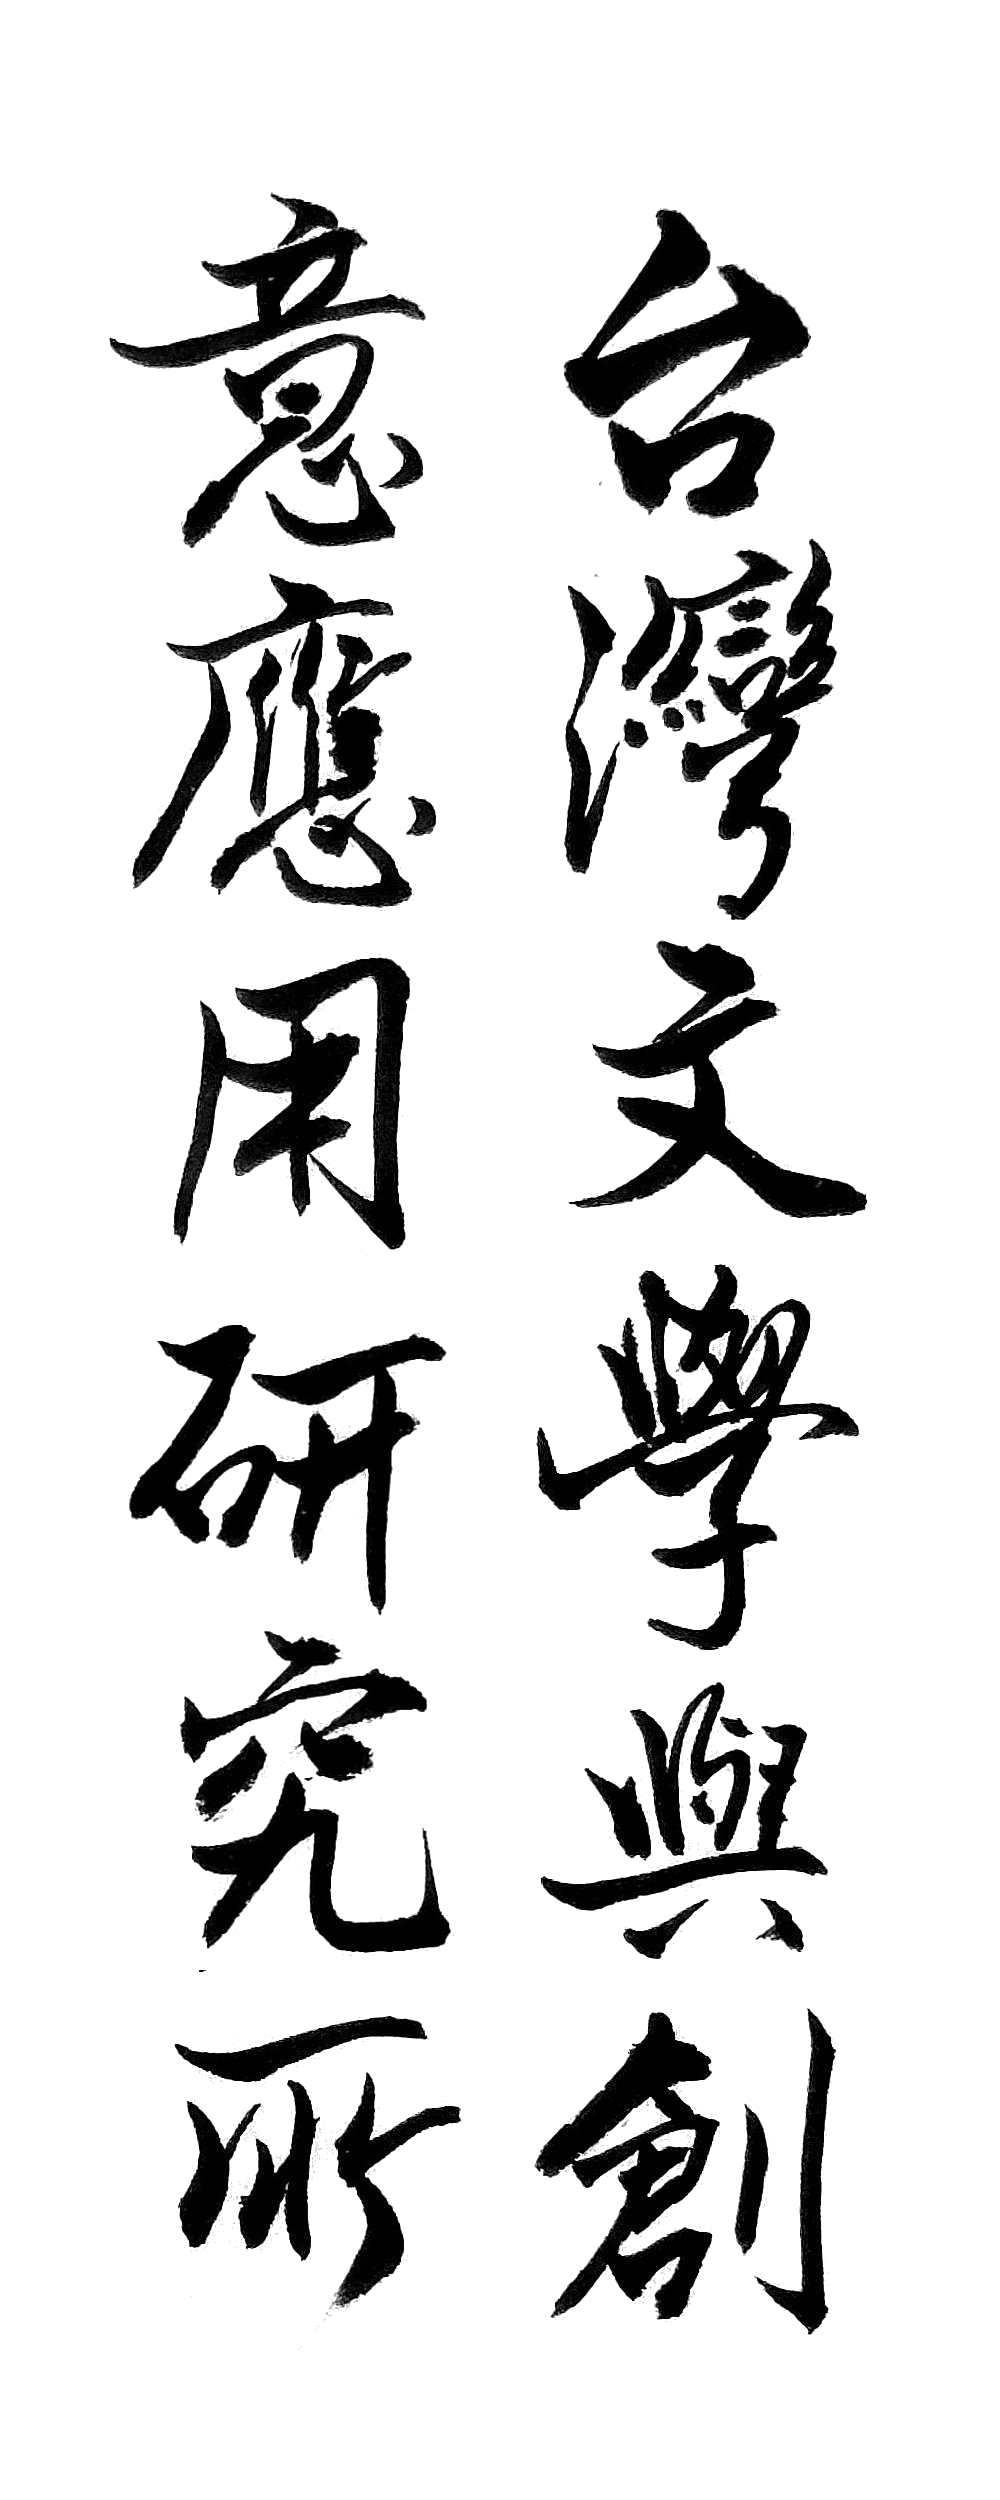 台灣文學與創
意應用研究所